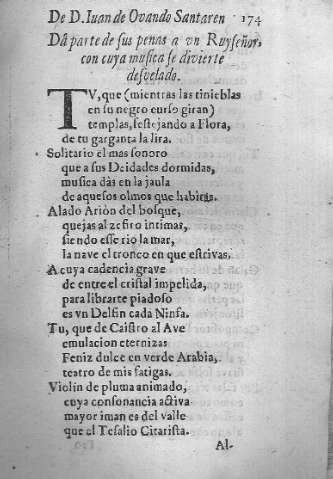 De D. Iuan de Ovando Santaren 174
Dà parte de sus penas a vn Ruyseñor,
con cuya musica se divierte
desvelado.
TV, que (mientras las tinieblas
en su negro curso giran)
templas, festejando a Flora,
de tu garganta la lira.
Solitario el mas sonoro
que a sus Deidades dormidas,
musica dàs en la jaula
de aquesos olmos que habitas.
Alado Ariòn del bosque,
quejas al zefiro intimas,
siendo esse rio la mar,
la nave el tronco en que estrivas.
A cuya cadencia grave
de entre el cristal impelida,
para librarte piadoso
es vn Delfin cada Ninfa.
Tu, que de Caistro al Ave
emulacion eternizas
Feniz dulce en verde Arabia,
teatro de mis fatigas.
Violin de pluma animado,
cuya consonancia activa
mayor iman es del valle
que el Tesalio Citarista.
Al-